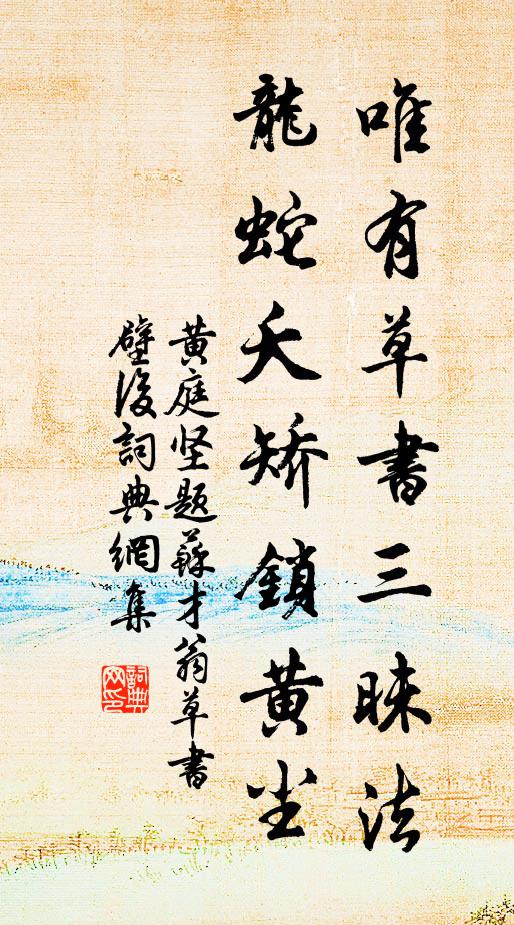 唯有草書三昧法
龍蛇夭矯鎖黄尘
黄庭坚題蘇才翁草書
壁後詞典網集
詞典
网印